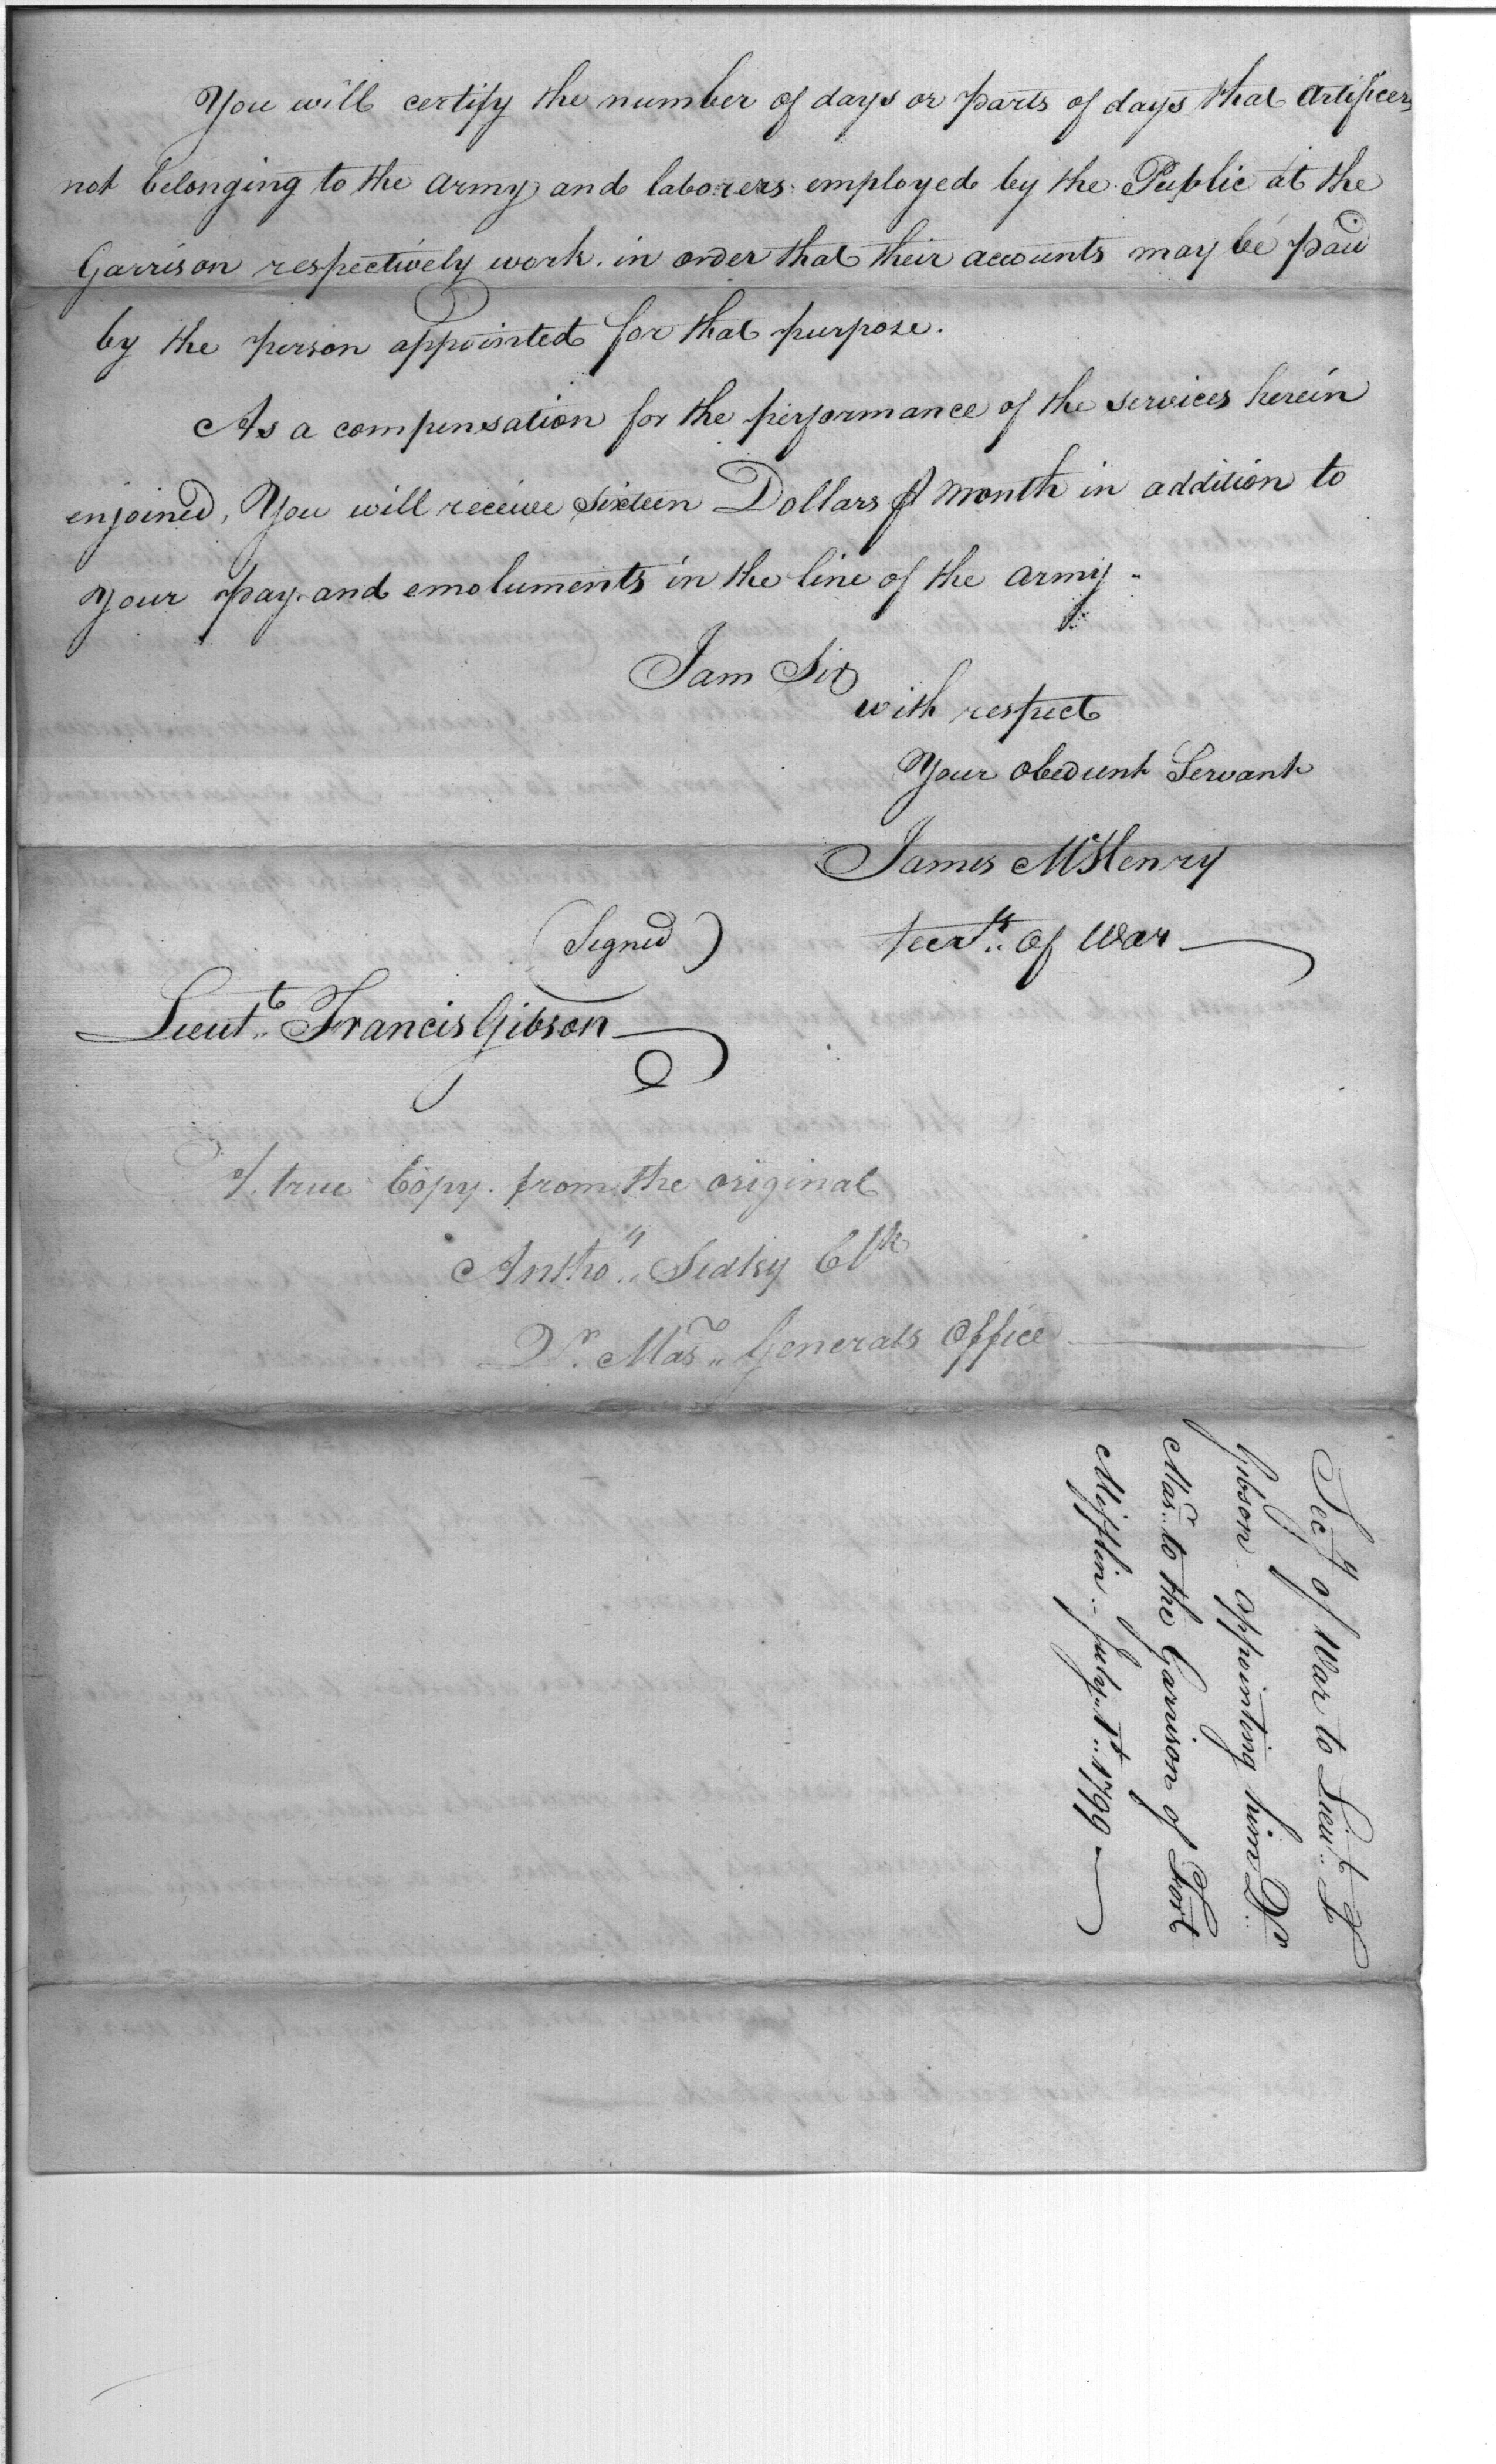 You will certify the number of days or parts of days that Artificers
not belonging to the army and laborers employed by the Public at the
Garrison respectively work. in order that their accounts may be paid
by the person appointed for that purpose.
As a compensation for the performance of the services herein
enjoined, You will receive sixteen Dollars ⅌ month in addition to
your pay and emoluments in the line of the army.
I am Sir
with respect
Your obedient Servant
James McHenry
(Signed) Secrty. of War
Lieut. Francis Gibson
A true Copy. from the original
Anthoy. Clk
Qr. Masr. Generals Office
Secy of War to Lieut. F
Gibson appointing him Qr
Masr. to the Garrison of Fort
Mifflin. July 1st. 1799